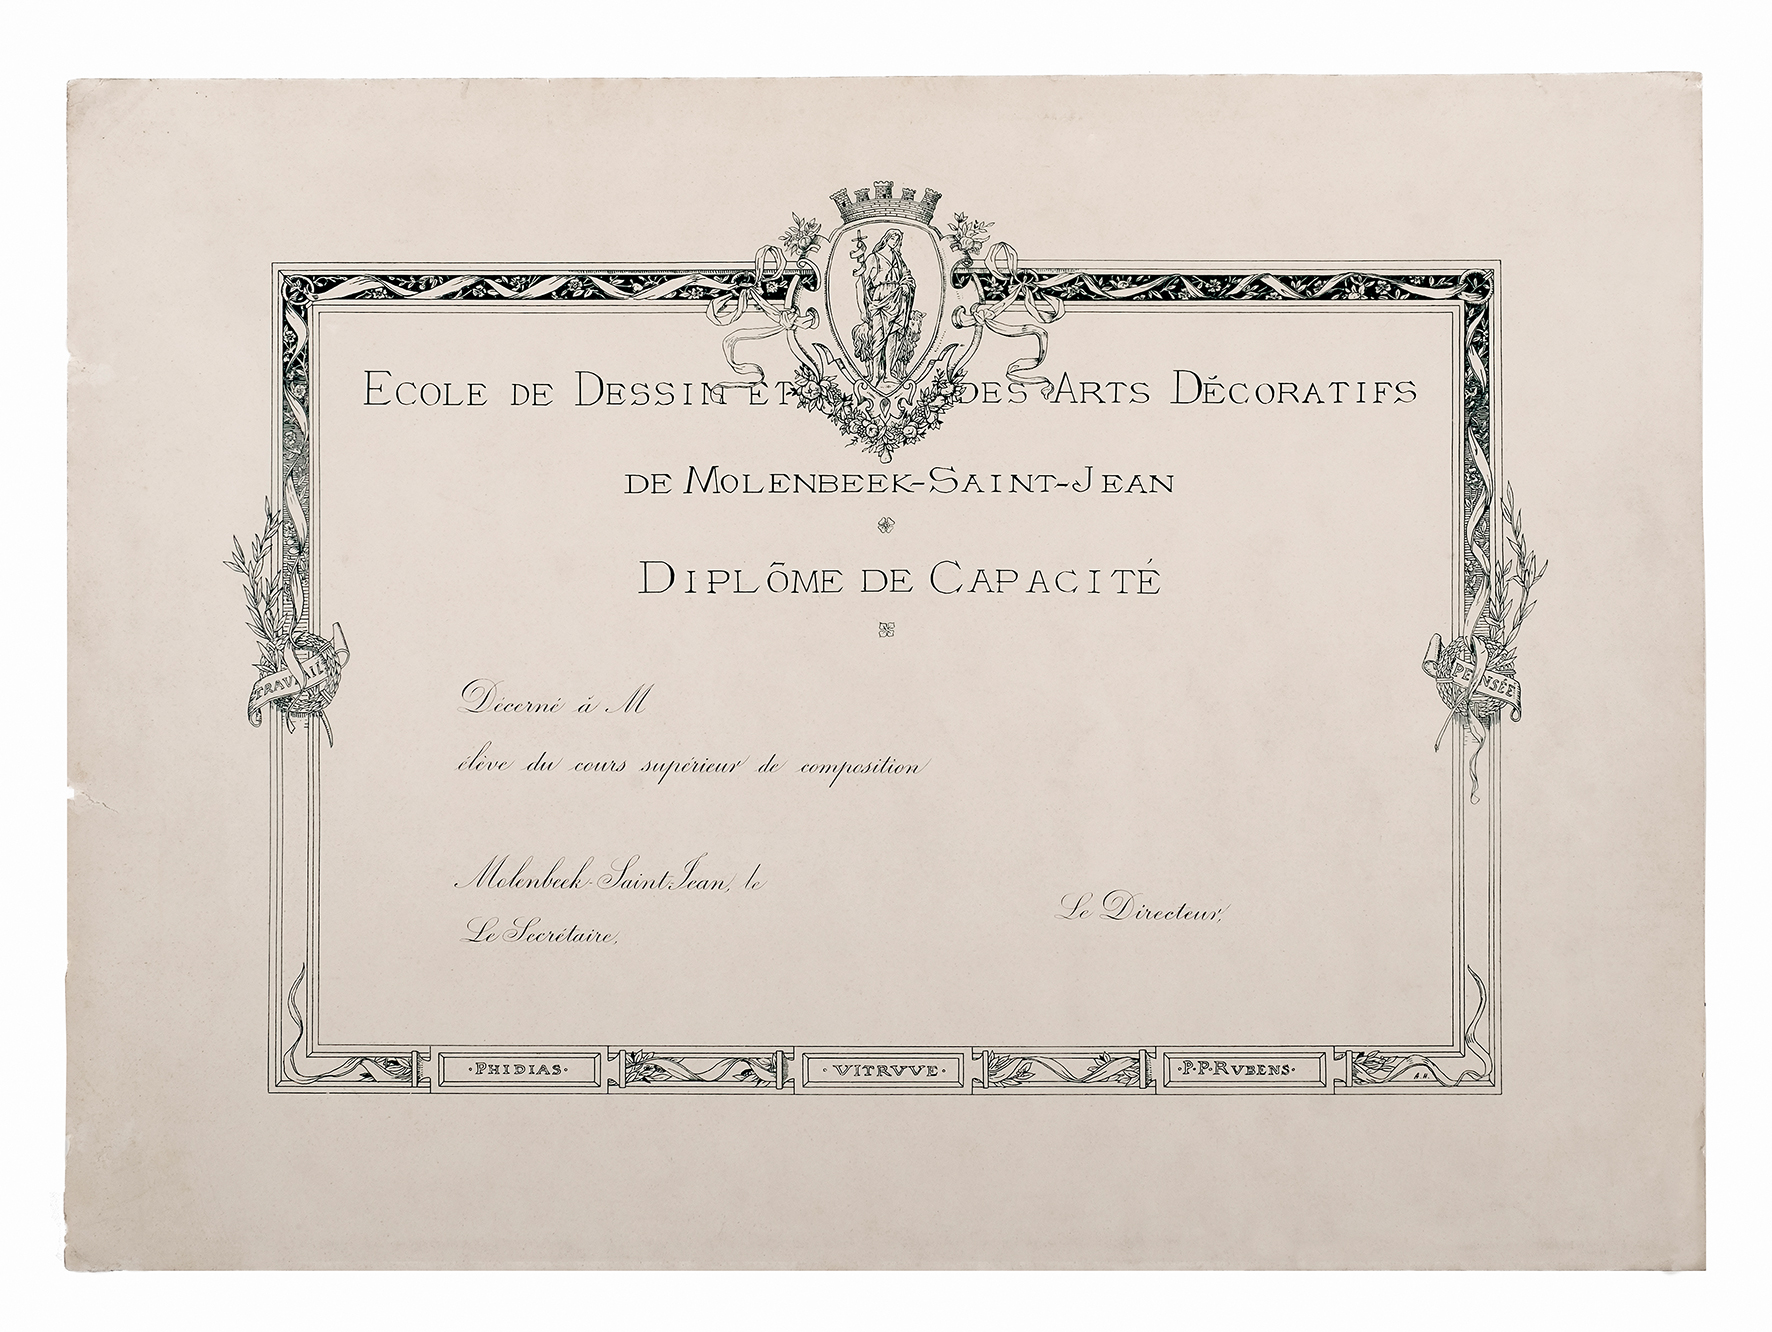 ECOLE DE DESSIN ET DES ARTS DÉCORATIFS
DE MOLENBEEK-SAINT-JEAN
DIPLÔME DE CAPACITÉ
TRAVAIL
PENSÉE
Décerné à M
élève du cours supérieur de composition
Molenbeek-Saint-Jean, le
Le Directeur,
Le Secrétaire,
·PHIDIAS·
·VITRVVE·
·P·P·RVBENS·
A.H.